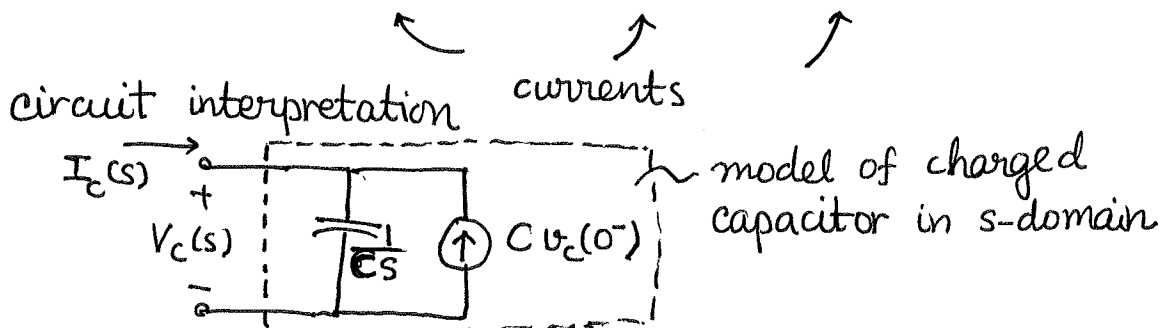 currents
circuit interpretation
I_c(s)
+
V_c(s)
−
1/CS
C v_c(0⁻)
model of charged
capacitor in s-domain